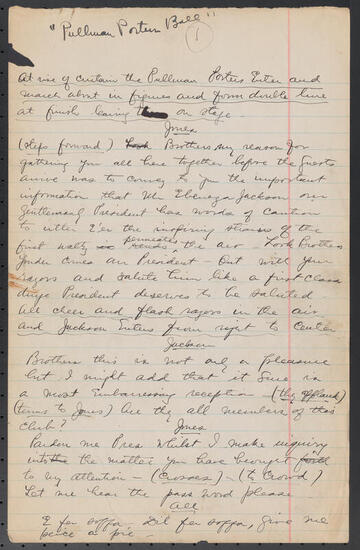 "Pullman Porters Ball"
1
At rise of curtain the Pullman Porters Enter and
march about in figures and form double line
at finish leaving on stage
Jones
(steps forward) Brothers my reason for
gathering you all here together before the Guests
arrive was to convey to you the important
information that Mr Ebenezer Jackson our
Gentlemanly President has words of caution
to utter E'er the inspiring strains of the
first waltz permeates the air - Look Brothers
yonder comes our President - Get with your
razors and salute him like a first class
President deserves to be saluted -
all cheer and flash razors in the air
and Jackson Enters from right to Center
Jackson
Brothers this is not only a pleasure
but I might add that it sure is
a most Embarrassing reception - (they applaud)
(turns to Jones) Are they all members of this
club?
Jones
Pardon me Pres whilst I make inquiry
into the matter you have brought forth
to my attention - (Crosses) - (to Crowd)
Let me hear the pass word please
All
give me
piece a pie -